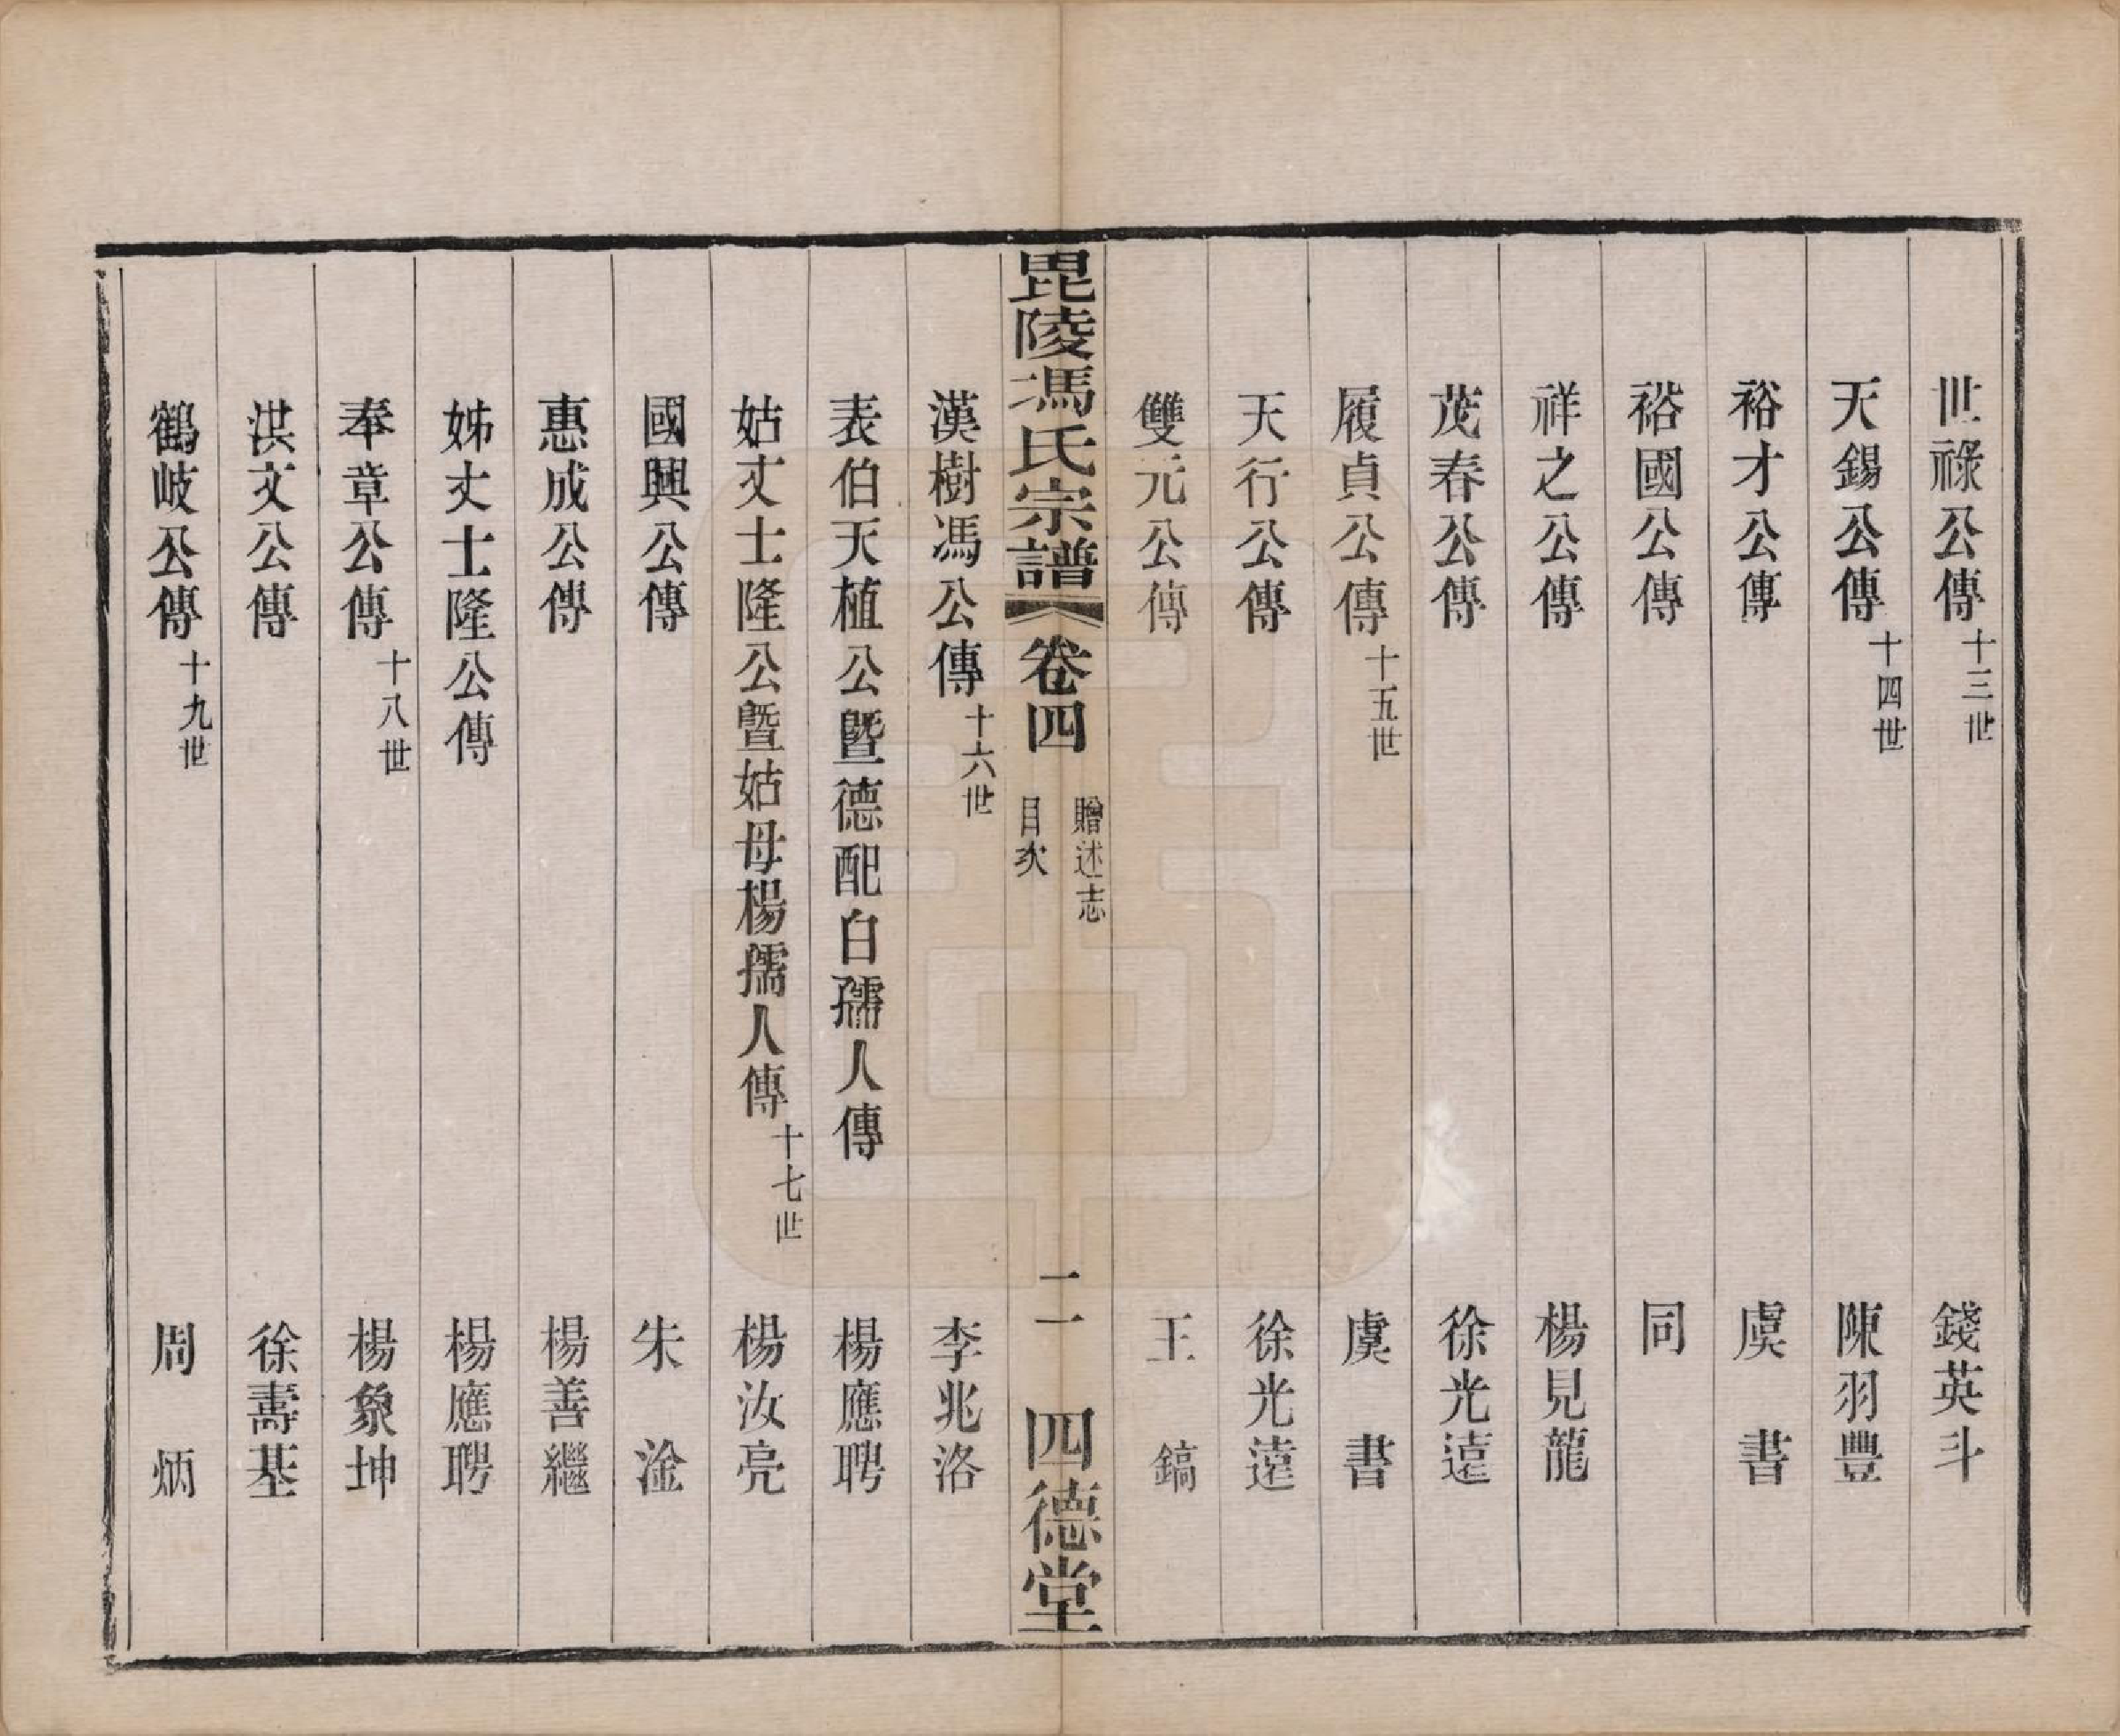 世祿公傳十三世 錢英斗
天錫公傳十四世 陳羽豐
裕才公傳 虞書
裕國公傳 同
祥之公傳 楊見龍
茂春公傳 徐光遠
履貞公傳十五世 虞書
天行公傳 徐光遠
雙元公傳 王鎬
毘陵馮氏宗譜 卷四 贈述志 目次 二 四德堂
漢樹馮公傳十六世 李兆洛
表伯天植公暨德配白孺人傳 楊應聘
姑丈士隆公暨姑母楊孺人傳十七世 楊汝亮
國興公傳 朱淦
惠成公傳 楊善繼
姊丈士隆公傳 楊應聘
奉章公傳十八世 楊象坤
洪文公傳 徐壽基
鶴岐公傳十九世 周炳